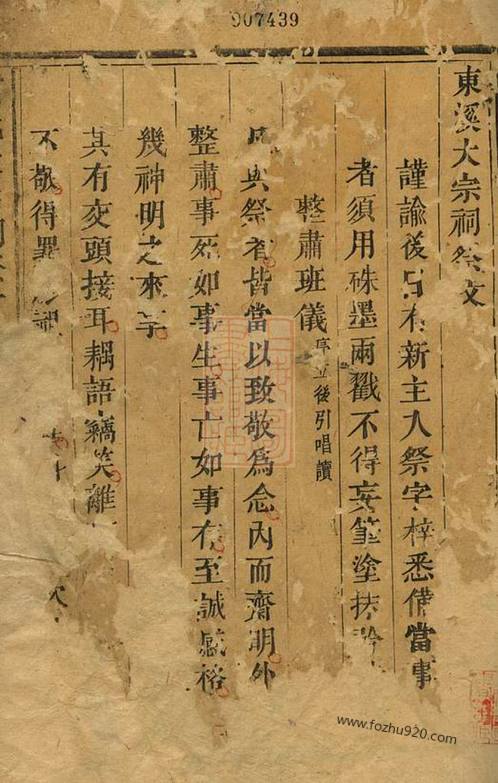 007439
東溪大宗祠祭文
謹諭後日有新主入祭字梓悉備當事
者須用硃墨兩戳不得妄筆塗抹
整肅班儀序立後引唱讀
凡與祭者皆當以致敬為念內而齊明外
整肅事死如事生事亡如事存至誠感格
幾神明之來享
其有交頭接耳耦語竊笑離
不敬得罪
www.fozhu920.com